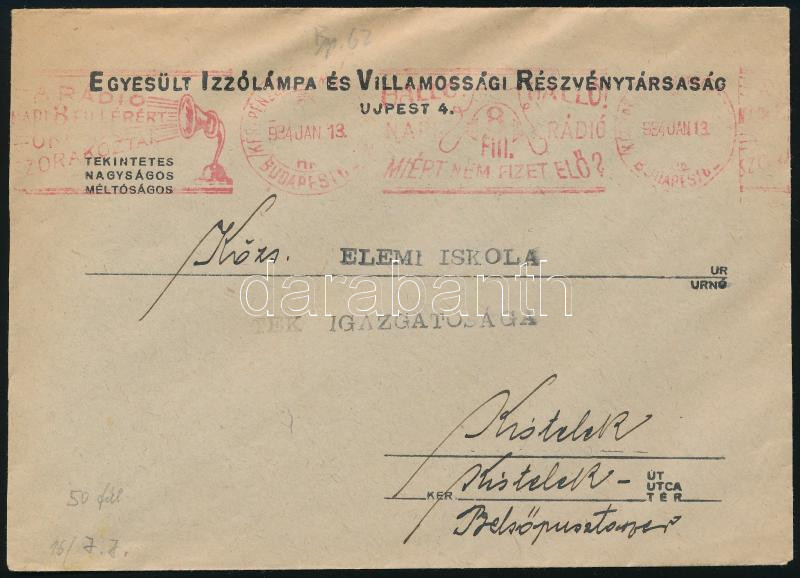 Bp. 62
EGYESÜLT IZZÓLÁMPA ÉS VILLAMOSSÁGI RÉSZVÉNYTÁRSASÁG
UJPEST 4.
A RÁDIÓ
NAPI 8 FILLÉRÉRT
SZÓRAKOZTAT
934 JAN 13.
BUDAPEST
HALLO! HALLO!
NAPI 8 Fill. RÁDIÓ
MIÉRT NEM FIZET ELŐ?
934 JAN 13.
BUDAPEST
TEKINTETES
NAGYSÁGOS
MÉLTÓSÁGOS
Közs. ELEMI ISKOLA
UR
URNŐ
darabanth
TEK IGAZGATOSÁGA
Kistelek
Kistelek -
KER.
ÚT
UTCA
TÉR
Belsőpusztaszer
50 fill
16/7.7.